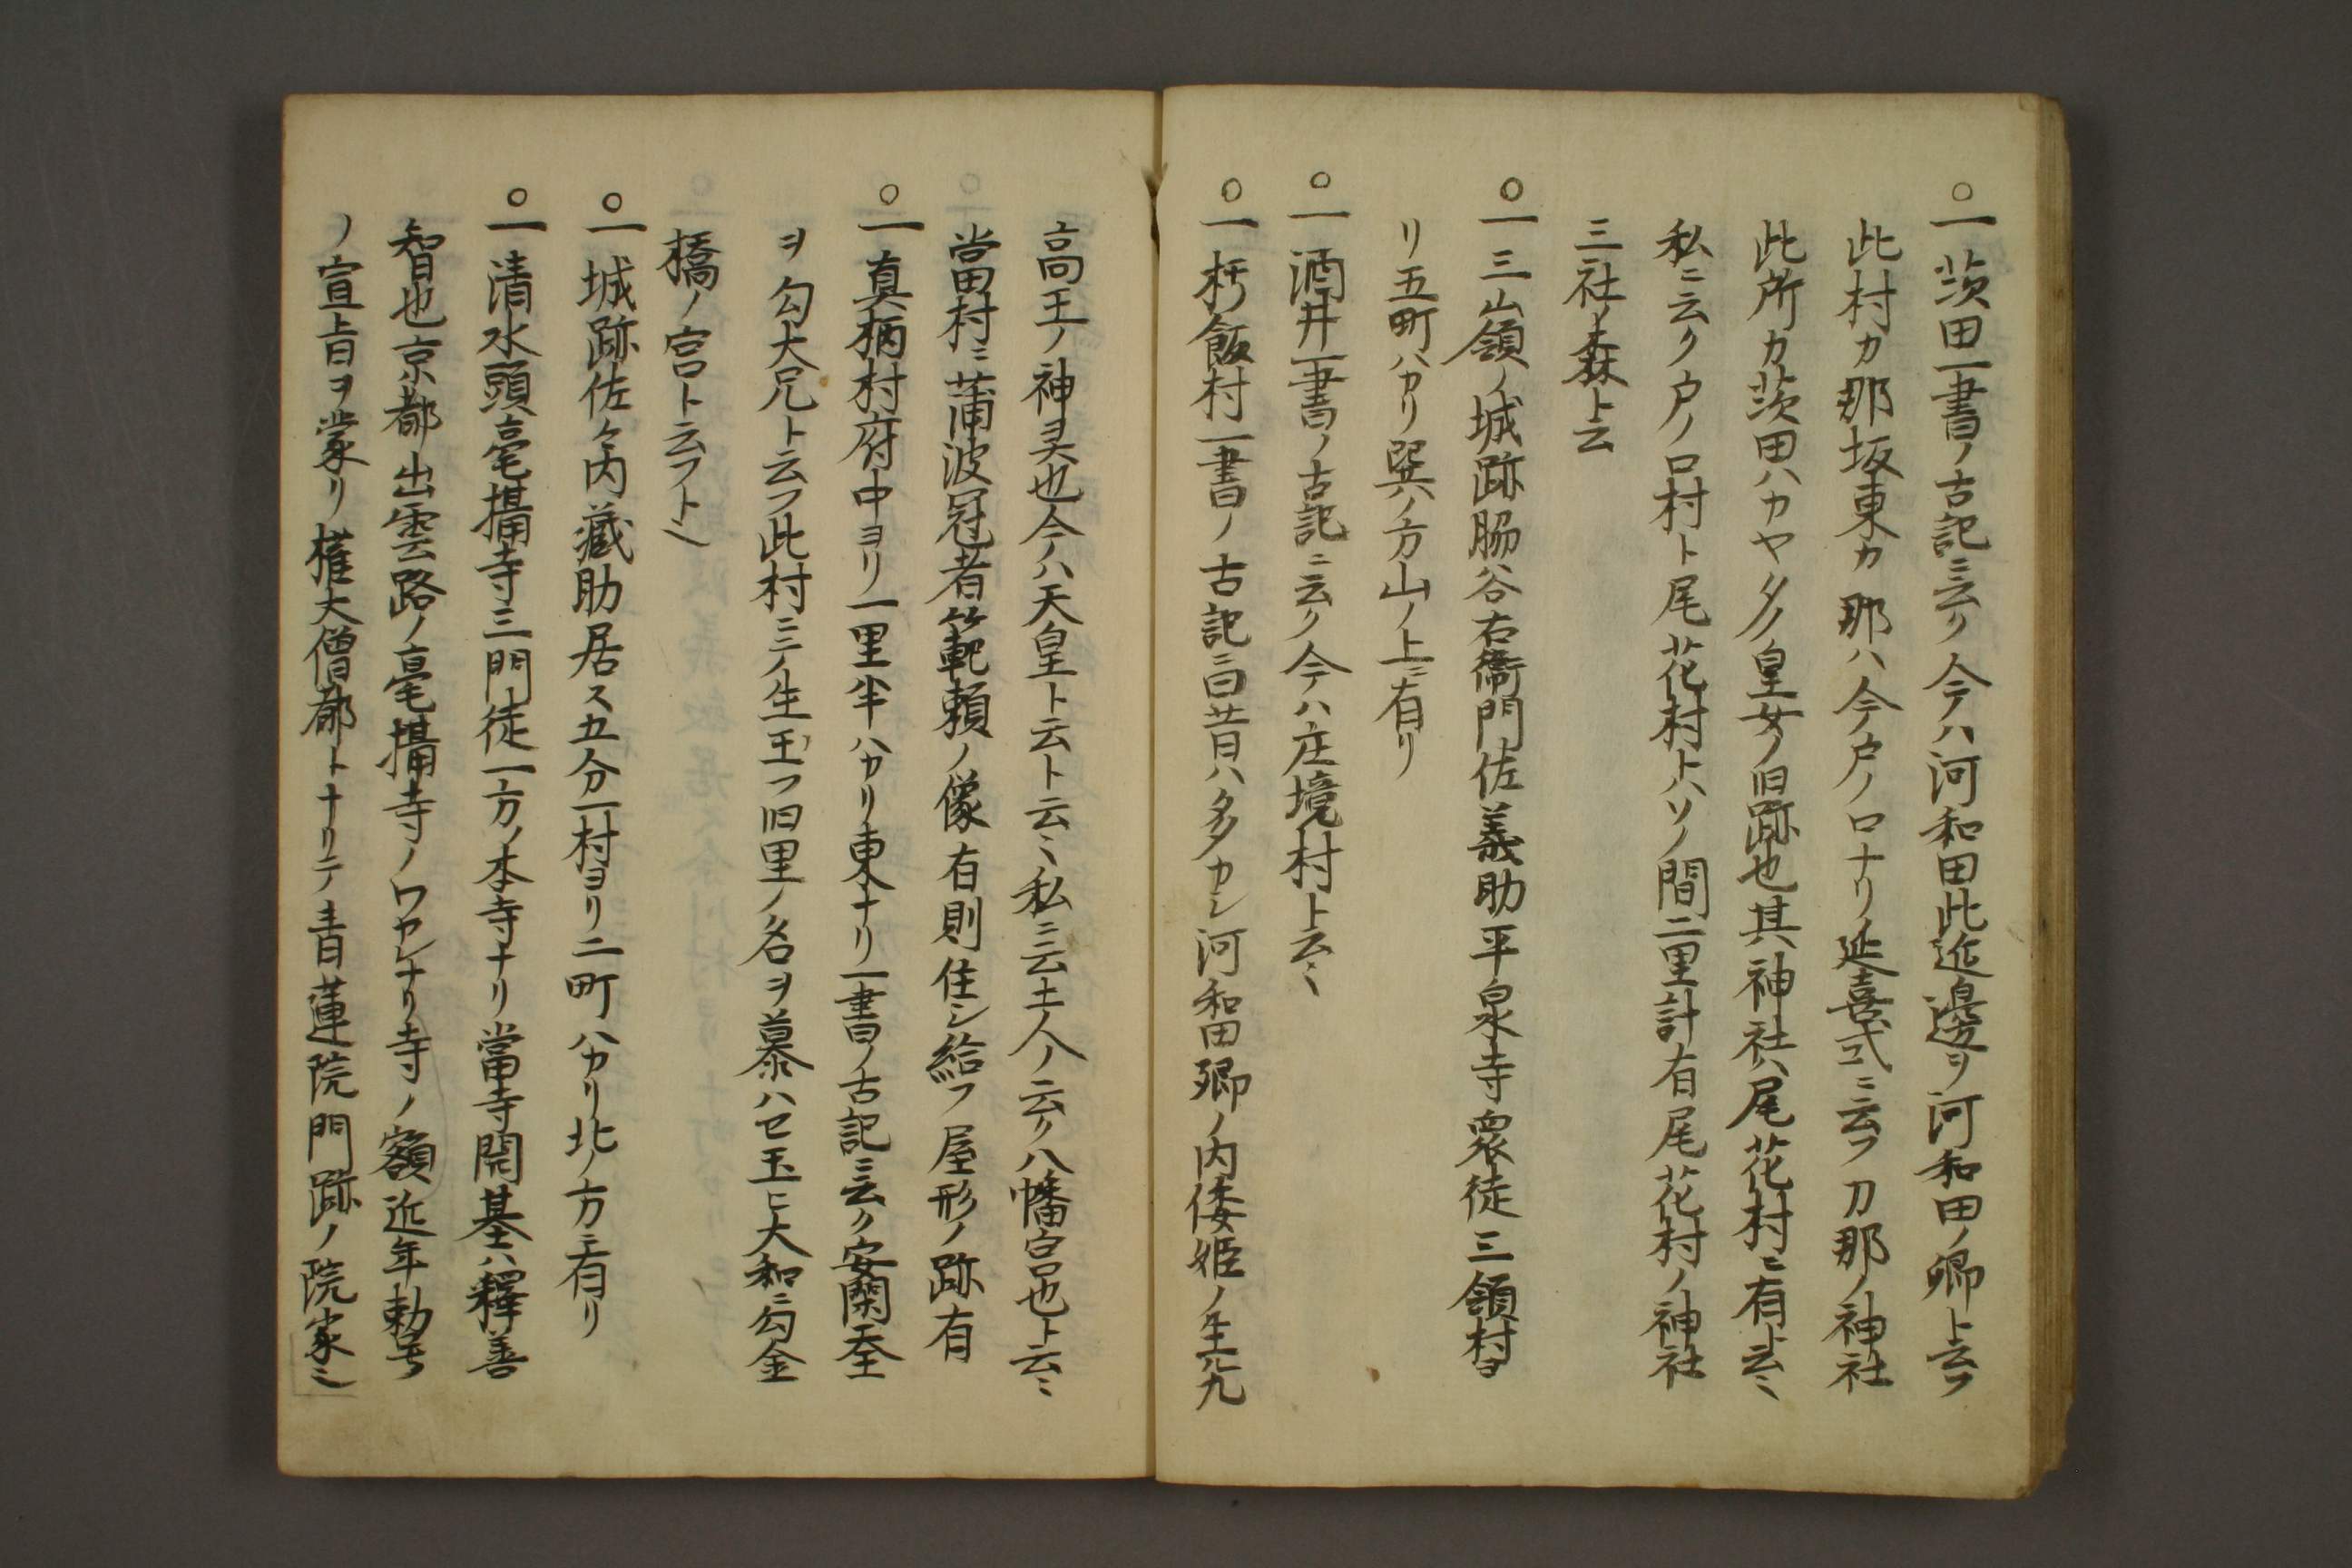 ○一茨田一書ノ古記ニ云ク今テハ河和田此近邊ヲ河和田ノ郷ト云フ
此村カ那坂東カ那ハ今テ戸ノ口ナリ延喜式ニ云フ刀那ノ神社
此所カ茨田ハカヤタノ皇女ノ旧跡也其神社ハ尾花村ニ有ト云ミ
私ニ云ク戸ノ口村ト尾花村トハソノ間二里計有尾花村ノ神社
三社ノ森ト云
○一三山領ノ城跡脇谷右衛門佐義助平泉寺衆徒三領村ヨ
リ五町ハカリ巽ノ方山ノ上ニ有リ
○一酒井一書ノ古記ニ云ク今テハ庄境村ト云ミ
○一朽飯村一書ノ古記ニ曰昔ハ多カシ河和田郷ノ内倭姫ノ生
高向王ノ神灵也今テハ天皇ト云ト云ミ私ニ云土人ノ云ク八幡宮也ト云ミ
當田村ニ蒲波冠者範頼ノ像有則住シ給フ屋形ノ跡有
○一真柄村府中ヨリ一里半ハカリ東ナリ一書ノ古記ニ云ク安閑天皇
ヲ勾大兄ト云フ此村ニテノ生玉フ旧里ノ名ヲ慕ハセ玉ヒ大和ニ勾金
橋ノ宮ト云フト
○一城跡佐々内藏助居ス五分一村ヨリ二町ハカリ北ノ方ニ有リ
○一清水頭毫攝寺三門徒一方ノ本寺ナリ當寺開基ハ釋善
智也京都出雲路ノ毫攝寺ノワカレナリ寺ノ額近年勅号
ノ宣旨ヲ蒙リ権大僧都トナリテ青蓮院門跡ノ院家ミ